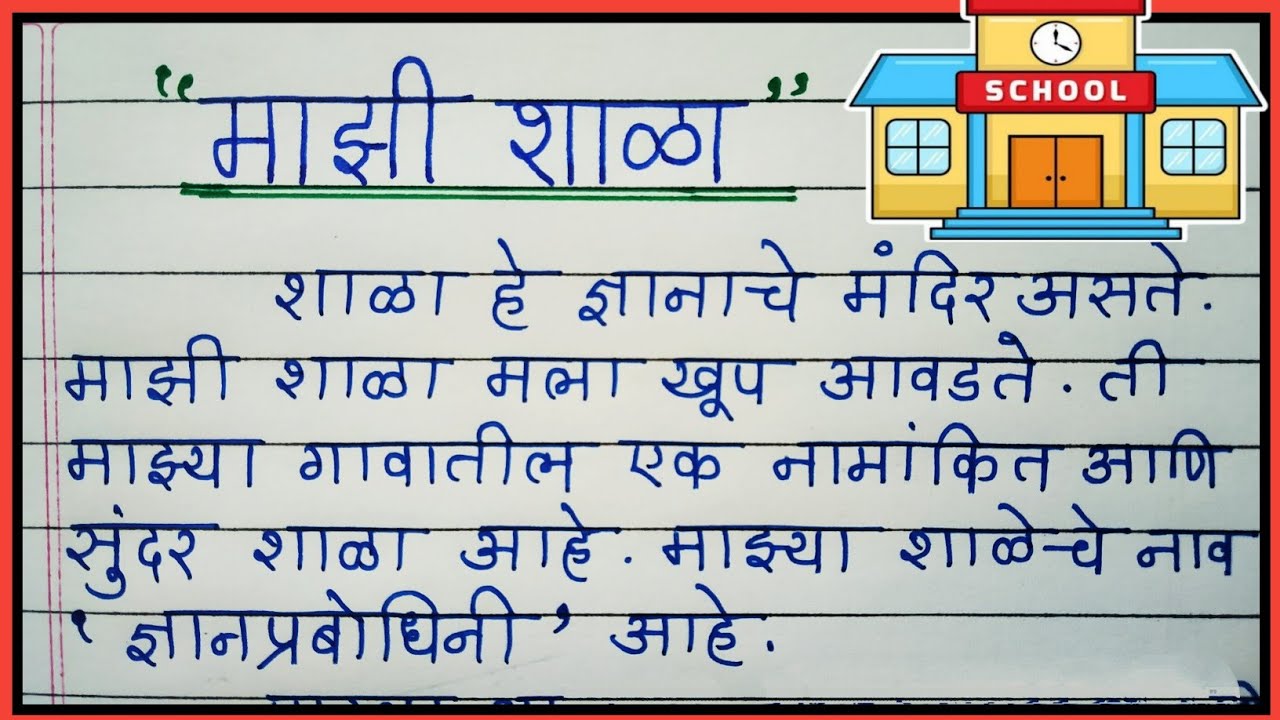 "माझी शाळा"
SCHOOL
शाळा हे ज्ञानाचे मंदिर असते.
माझी शाळा मला खूप आवडते. ती
माझ्या गावातील एक नामांकित आणि
सुंदर शाळा आहे. माझ्या शाळेचे नाव
'ज्ञानप्रबोधिनी' आहे.